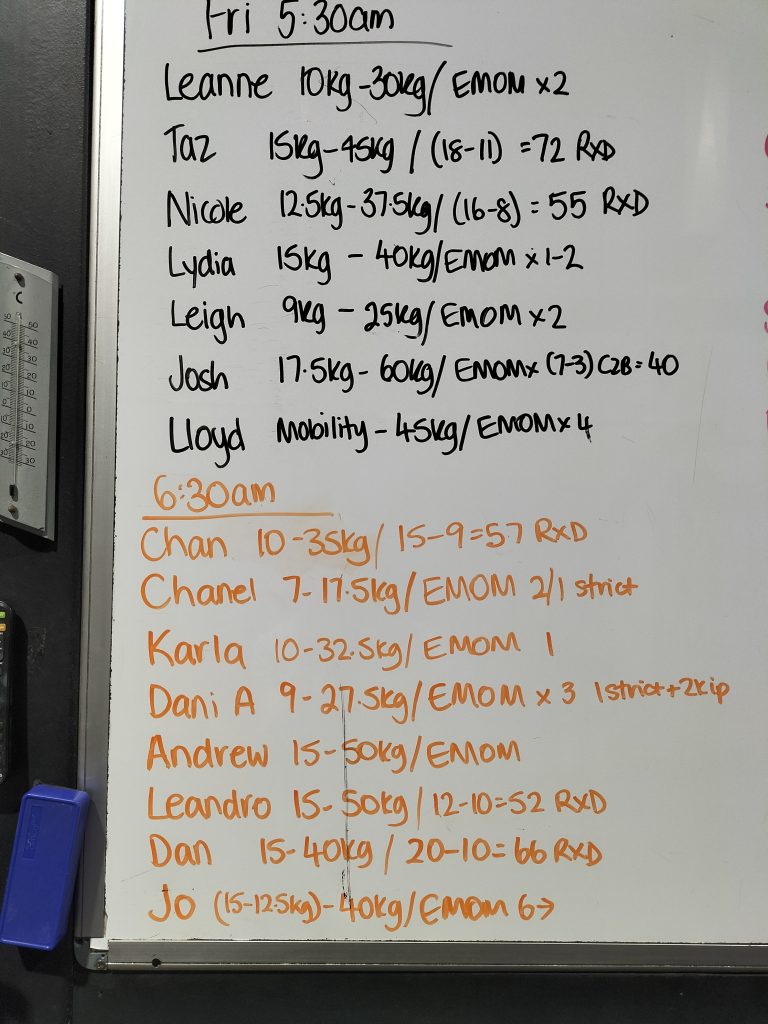 Fri 5:30am
Leanne 10kg-30kg/ EMOM x2
Taz 15kg-45kg / (18-11) =72 RXD
Nicole 12.5kg-37.5kg/ (16-8) = 55 RXD
Lydia 15kg - 40kg/EMOM x 1-2
Leigh 9kg - 25kg/ EMOM x2
Josh 17.5kg- 60kg/ EMOMx (7-3) C2B=40
Lloyd Mobility-45kg/ EMOMx 4
6:30am
Chan 10-35kg/ 15-9=57 RXD
Chanel 7-17.5kg/EMOM 2/1 strict
Karla 10-32.5kg/ EMOM 1
Dani A 9-27.5kg/EMOM x 3 1strict+2kip
Andrew 15-50kg/EMOM
Leandro 15-50kg/12-10=52 RXD
Dan 15-40kg / 20-10=66 RXD
Jo (15-12.5kg)-40kg/EMOM 6→